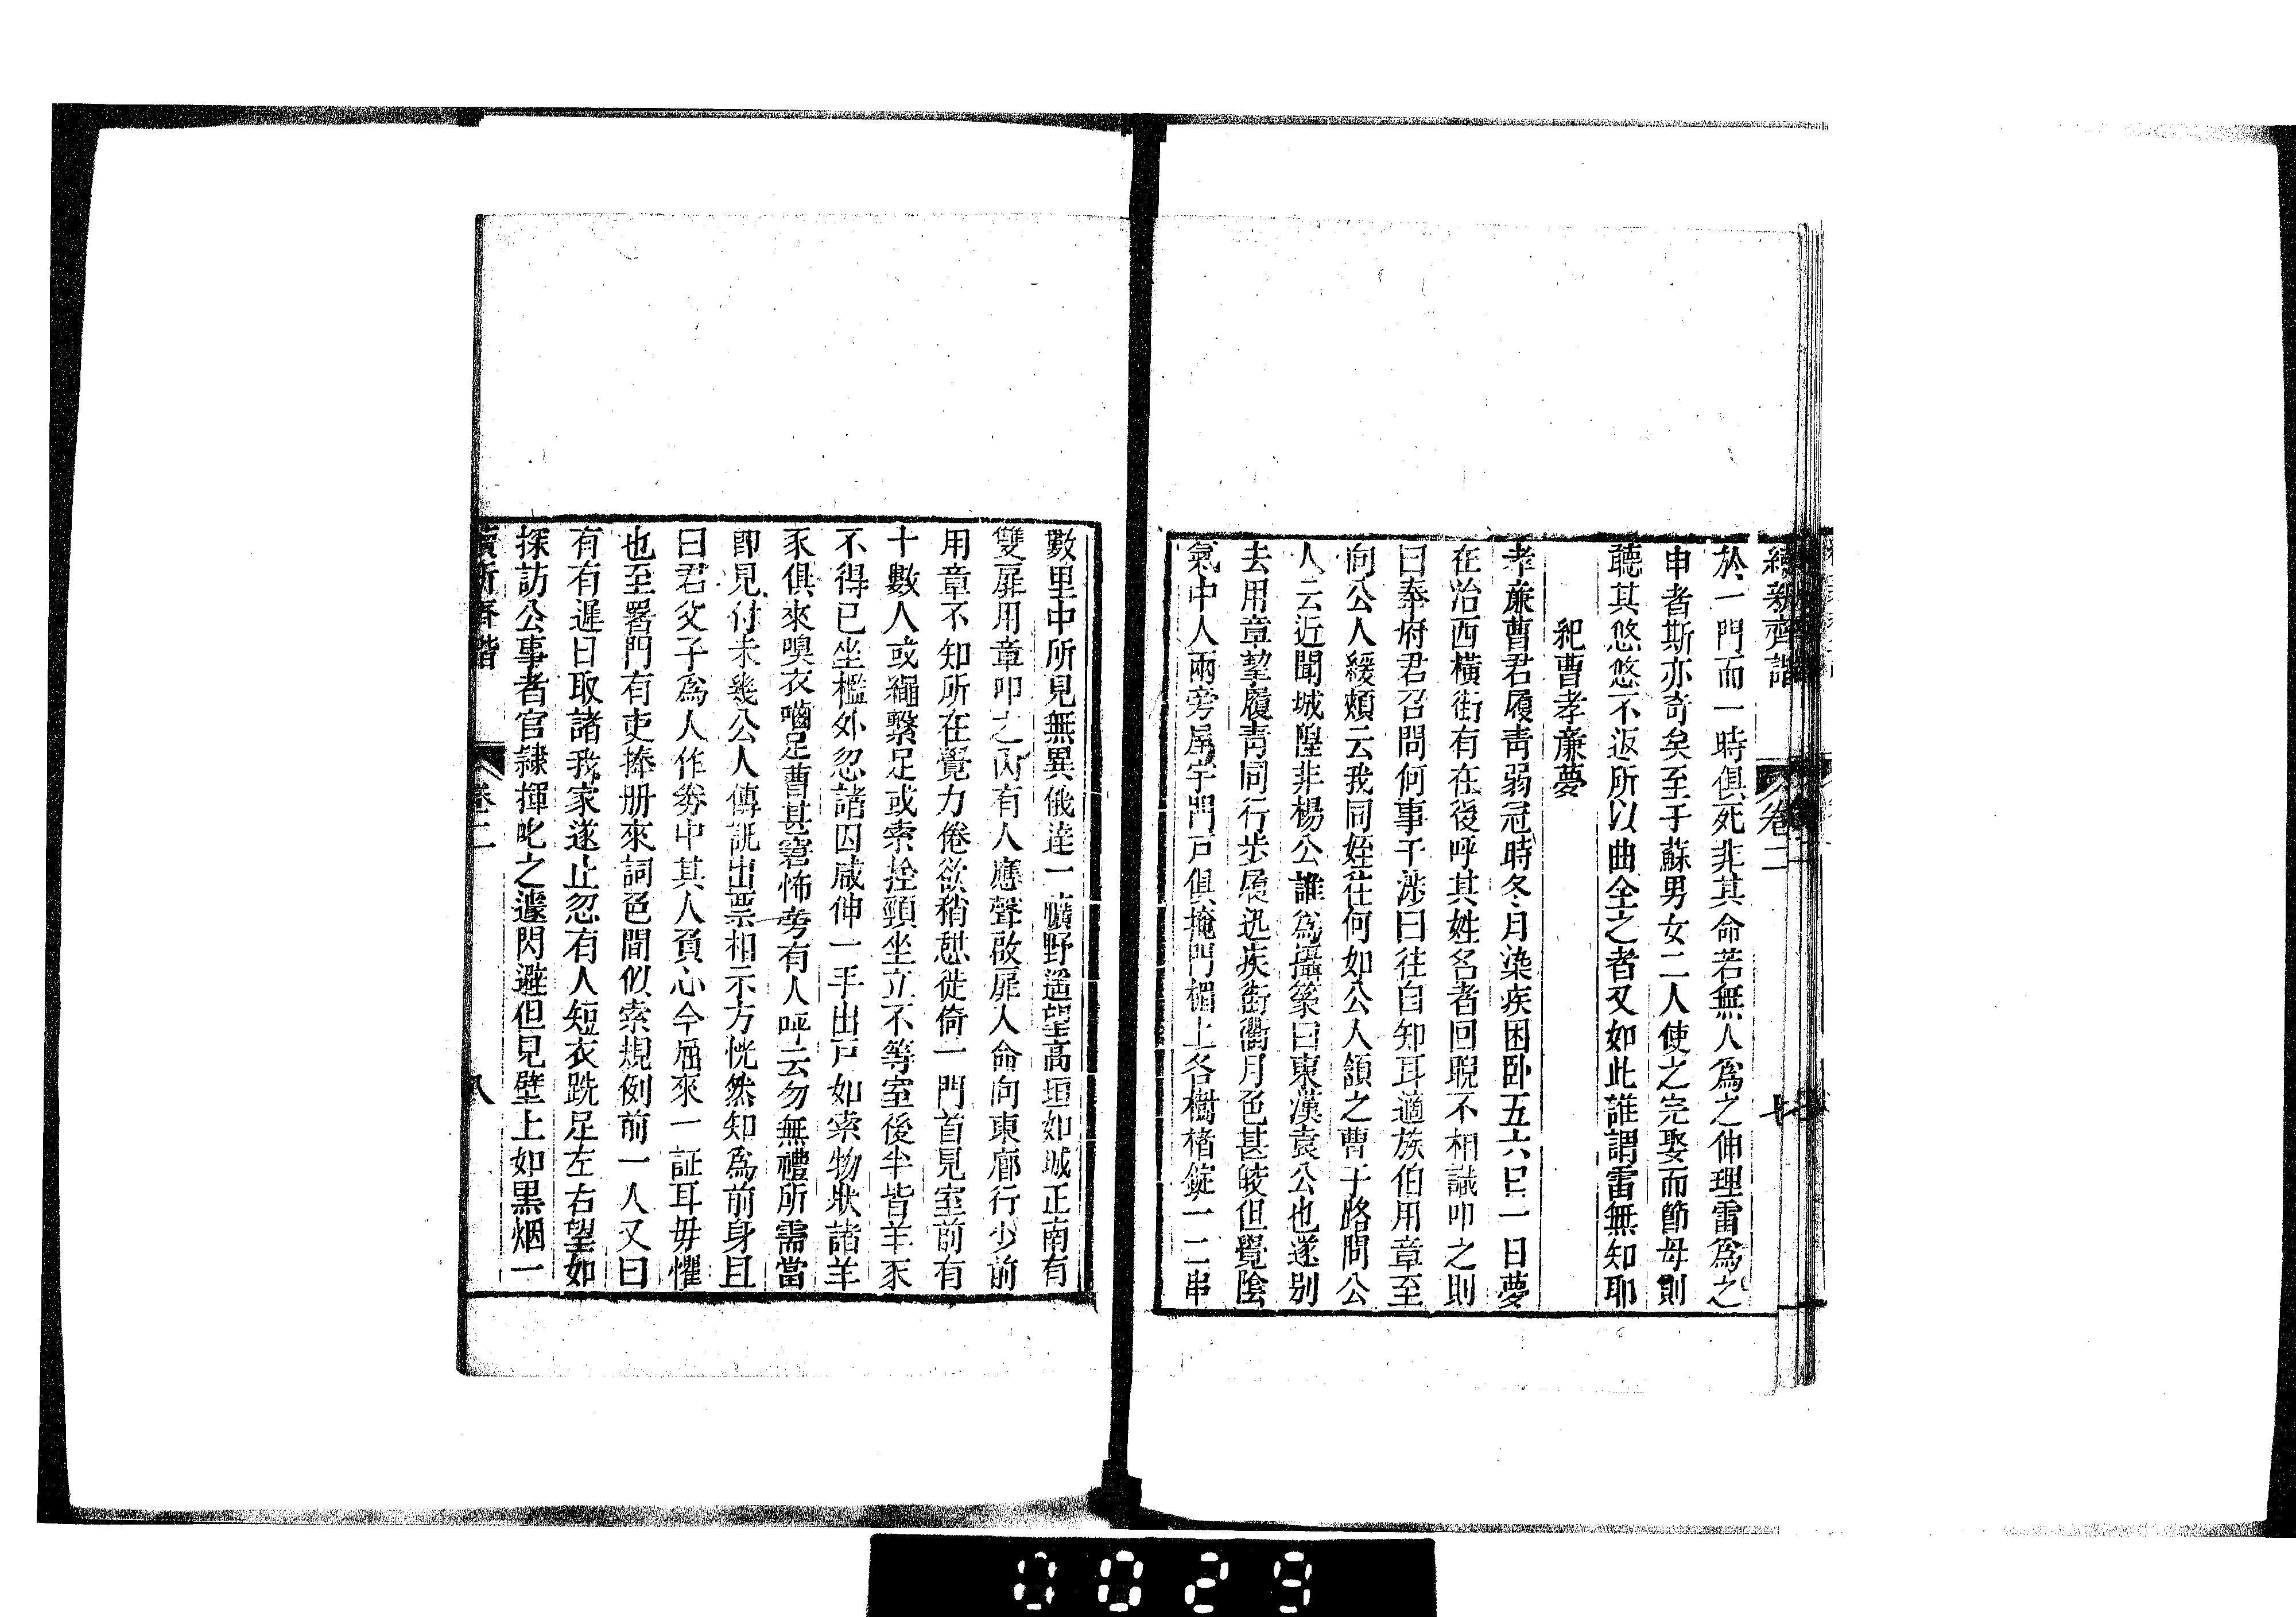 續新齊諧 卷二 七
於一門而一時俱死非其命若無人爲之伸理雷爲之
申者斯亦奇矣至于蘇男女二人使之完娶而節母則
聽其悠悠不返所以曲全之者又如此誰謂雷無知耶
紀曹孝廉夢
孝廉曹君履青弱冠時冬月染疾困卧五六日一日夢
在治西橫街有在後呼其姓名者回睨不相識叩之則
曰奉府君召問何事予涉曰往自知耳適族伯用章至
向公人緩頰云我同姪往何如公人頷之曹于路問公
人云近聞城隍非楊公誰爲攝篆曰東漢袁公也遂别
去用章挈履青同行步履迅疾街衢月色甚皎但覺陰
氣中人兩旁屋宇門戸俱掩門楣上各樹楮錠一二串
數里中所見無異俄達一曠野遥望高垣如城正南有
雙扉用章叩之内有人應聲啟扉入命向東廊行少前
用章不知所在覺力倦欲稍憇徙倚一門首見室前有
十數人或繩繫足或索拴頸坐立不等室後半皆羊豕
不得已坐檻外忽諸囚咸伸一手出戸如索物狀諸羊
豕俱來嗅衣嚙足曹甚窘怖旁有人呼云勿無禮所需當
即見付未幾公人傳訊出票相示方恍然知爲前身且
曰君父子爲人作劵中其人負心今屈來一証耳毋懼
也至署門有吏捧册來詞色間似索規例前一人又曰
有有遲日取諸我家遂止忽有人短衣跣足左右望如
探訪公事者官隷揮叱之遽閃避但見壁上如黒烟一
續新齊諧 卷二 八
0029